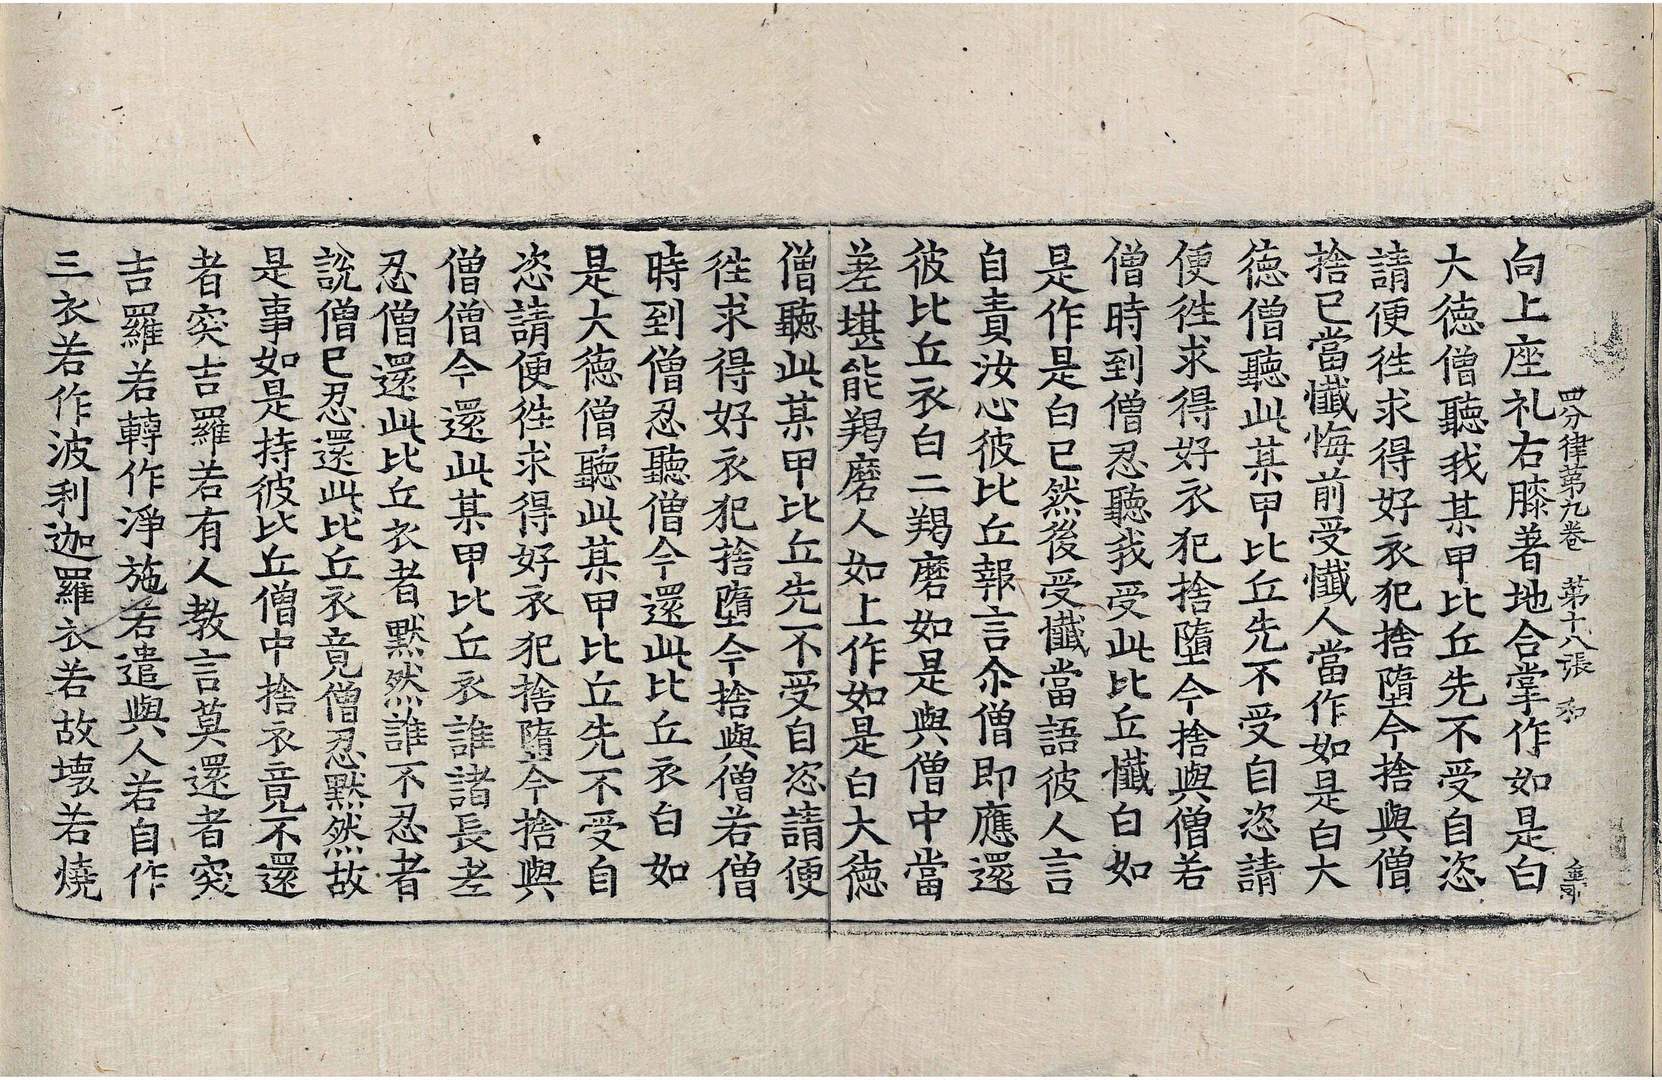 四分律第九卷 第十八張 和
向上座礼右膝著地合掌作如是白
大德僧聽我某甲比丘先不受自恣
請便徃求得好衣犯捨墮今捨與僧
捨已當懺悔前受懺人當作如是白大
德僧聽此某甲比丘先不受自恣請
便徃求得好衣犯捨墮今捨與僧若
僧時到僧忍聽我受此比丘懺白如
是作是白已然後受懺當語彼人言
自責汝心彼比丘報言尒僧即應還
彼比丘衣白二羯磨如是與僧中當
差堪能羯磨人如上作如是白大德
僧聽此某甲比丘先不受自恣請便
徃求得好衣犯捨墮今捨與僧若僧
時到僧忍聽僧今還此比丘衣白如
是大德僧聽此某甲比丘先不受自
恣請便徃求得好衣犯捨墮今捨與
僧僧今還此某甲比丘衣誰諸長老
忍僧還此比丘衣者默然誰不忍者
說僧已忍還此比丘衣竟僧忍默然故
是事如是持彼比丘僧中捨衣竟不還
者突吉羅若有人教言莫還者突
吉羅若轉作淨施若遣與人若自作
三衣若作波利迦羅衣若故壞若燒